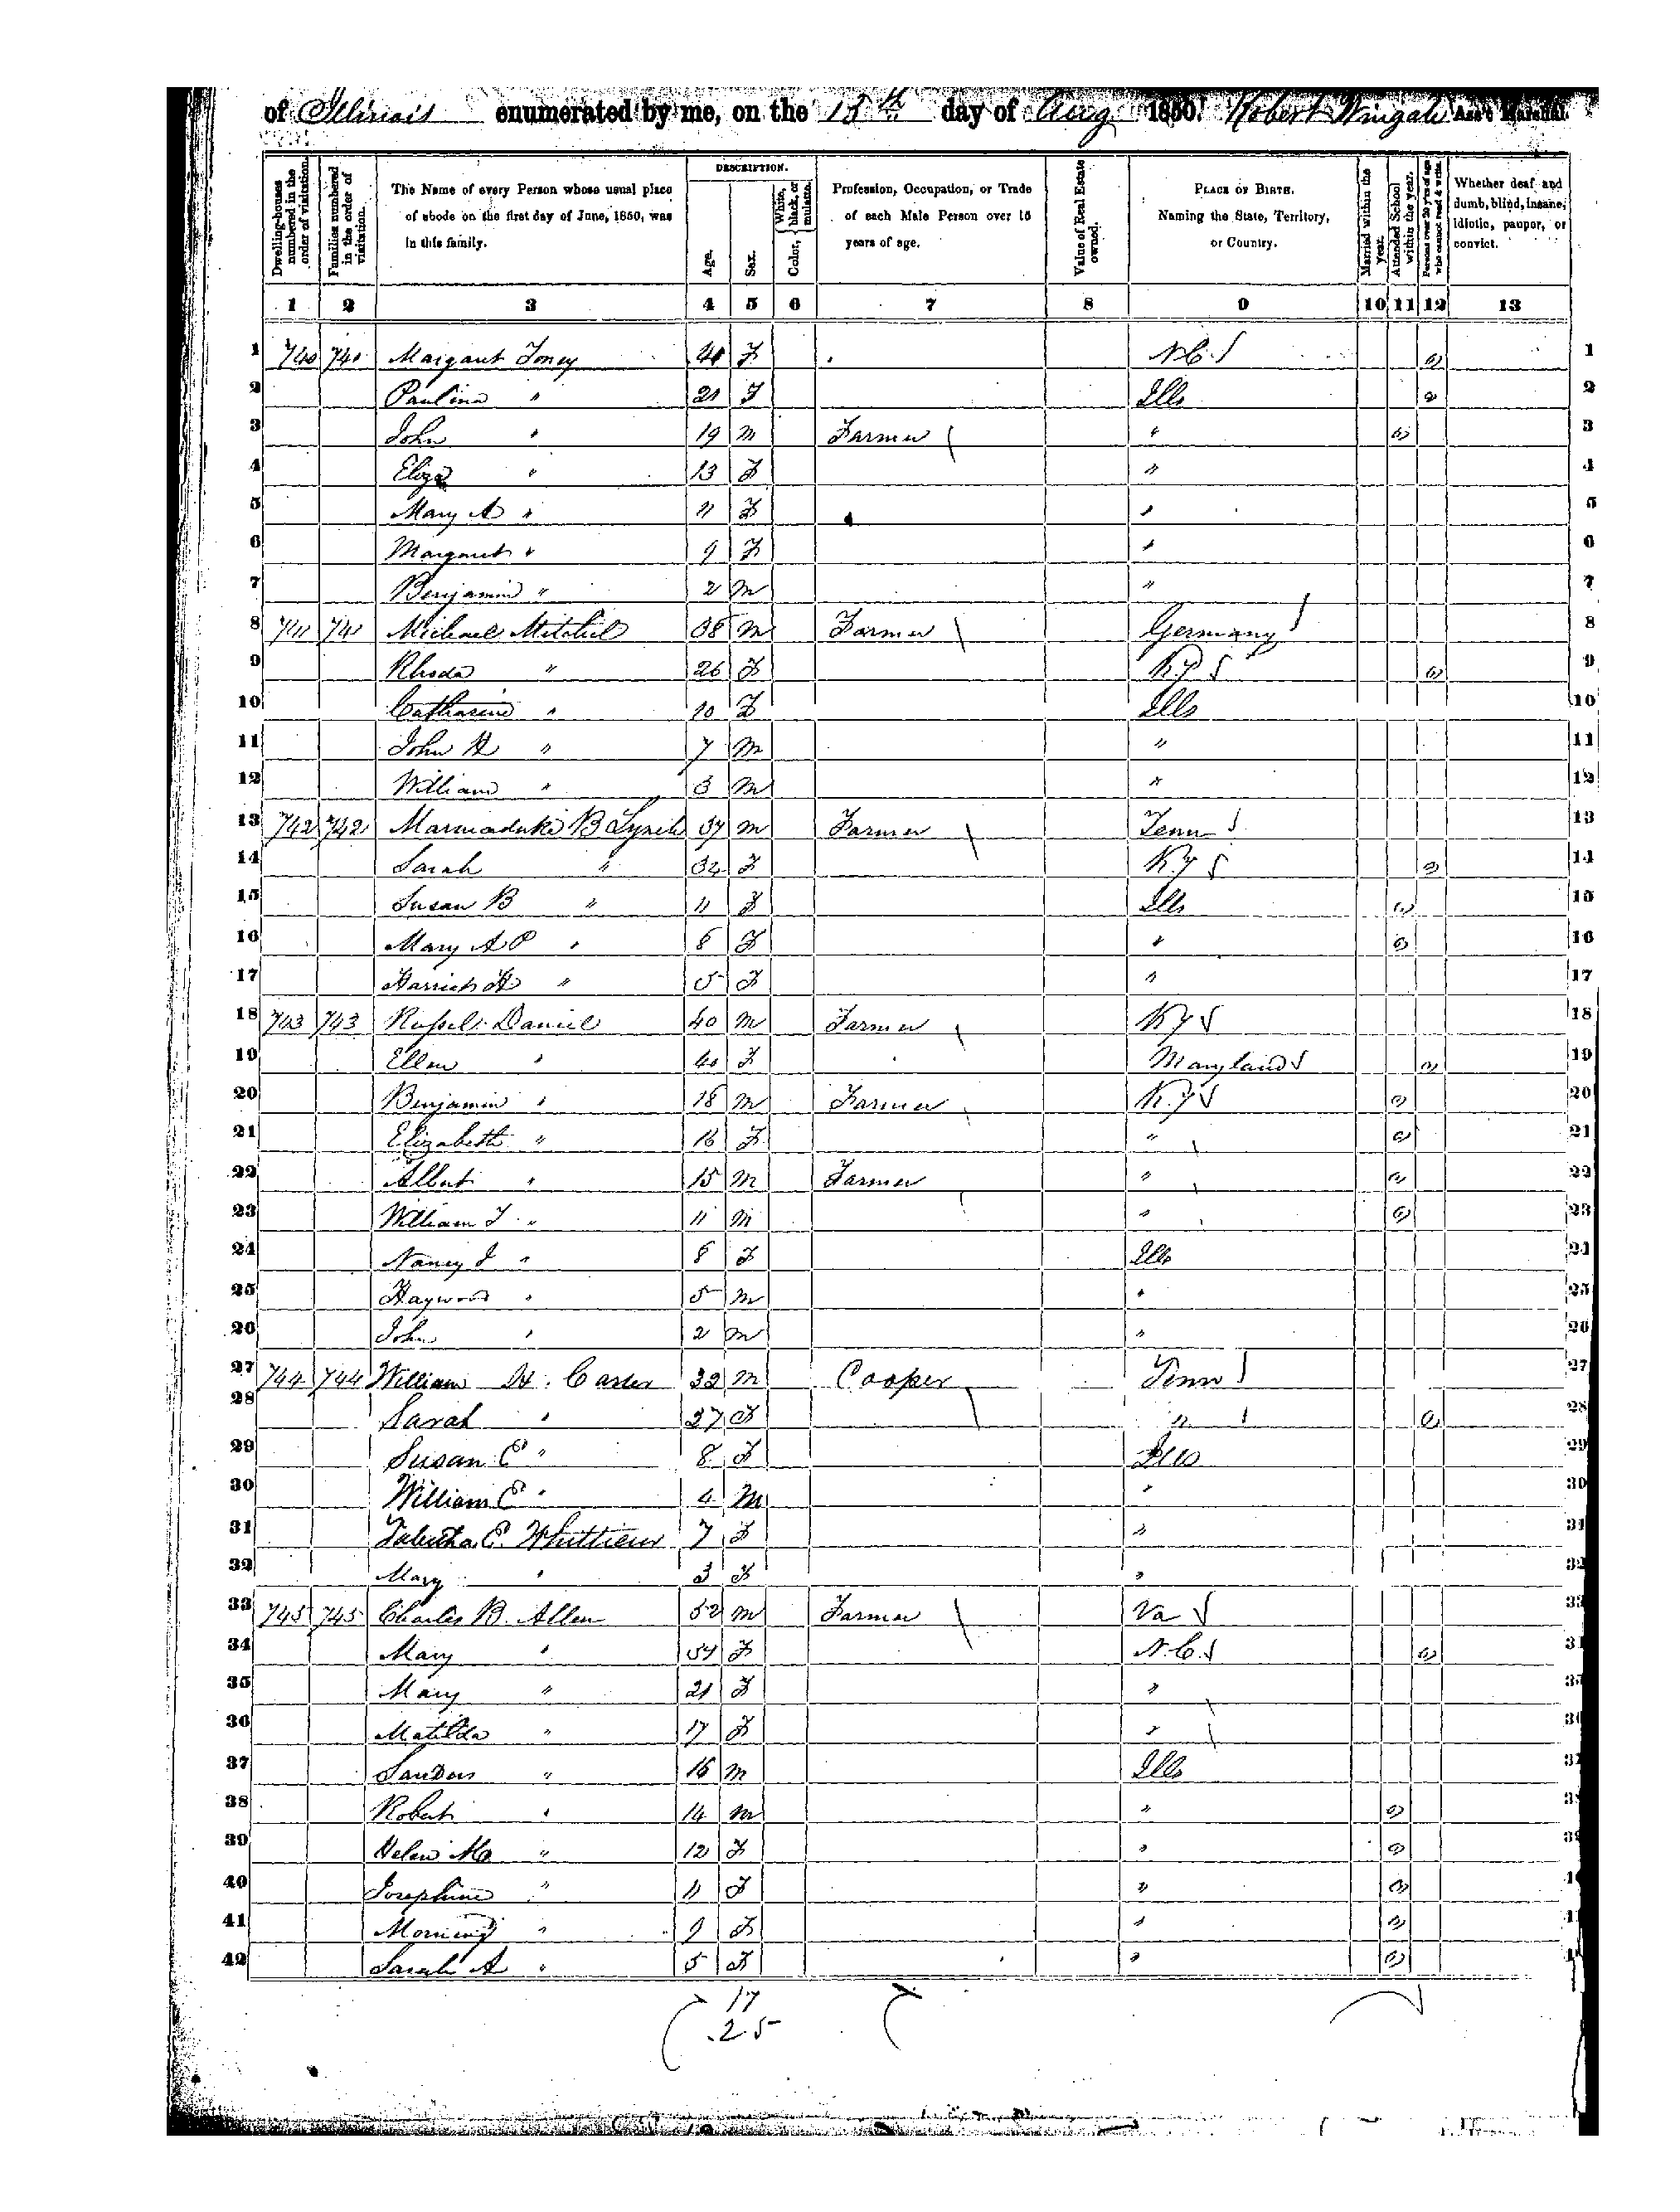 of Illinois enumerated by me, on the 15th day of Aug 1850. Robert Wingate Ass't Marshal.
Dwelling-houses numbered in the order of visitation.
Families numbered in the order of visitation.
The Name of every Person whose usual place of abode on the first day of June, 1850, was in this family.
DESCRIPTION.
Age.
Sex.
Color, { White, black, or mulatto.
Profession, Occupation, or Trade of each Male Person over 15 years of age.
Value of Real Estate owned.
PLACE OF BIRTH. Naming the State, Territory, or Country.
Married within the year.
Attended School within the year.
Persons over 20 years of age who cannot read & write.
Whether deaf and dumb, blind, insane, idiotic, pauper, or convict.
1 2 3 4 5 6 7 8 9 10 11 12 13
1 740 740 Margaret Toney F N.C. 1
2 Paulina " 21 F Ills 2
3 John " 19 M Farmer " 3
4 Eliza " 13 F " 4
5 Mary A " 11 F " 5
6 Margaret " 9 F " 6
7 Benjamin " 2 M " 7
8 741 741 Michael Mitchel 38 M Farmer Germany 8
9 Rhoda " 26 F Ky 9
10 Catharine " 10 F Ills 10
11 John H " 7 M " 11
12 William " 3 M " 12
13 742 742 Marmaduke B Lynch 37 M Farmer Tenn 13
14 Sarah " 34 F Ky 14
15 Susan B " 11 F Ills 15
16 Mary A P " 8 F " 16
17 Harriet H " 5 F " 17
18 743 743 Russel Daniel 40 M Farmer Ky 18
19 Ellen " 40 F Maryland 19
20 Benjamin " 18 M Farmer Ky 20
21 Elizabeth " 16 F " 21
22 Albert " 15 M Farmer " 22
23 William T " 11 M " 23
24 Nancy J " 8 F Ills 24
25 Haywood " 5 M " 25
26 John " 2 M " 26
27 744 744 William H. Carter 32 M Cooper Tenn 27
28 Sarah " 27 F " 28
29 Susan E " 8 F Ills 29
30 William E " 4 M " 30
31 Tabitha E. 7 F " 31
32 Mary " 3 F " 32
33 745 745 Charles B. Allen 52 M Farmer Va 33
34 Mary " 54 F N.C. 34
35 Mary " 21 F " 35
36 Matilda " 17 F " 36
37 Sanders " 16 M Ills 37
38 Robert " 14 M " 38
39 Helen M " 12 F " 39
40 Josephine " 11 F "
41 Morning " 9 F "
42 Sarah A " 5 F "
17
25